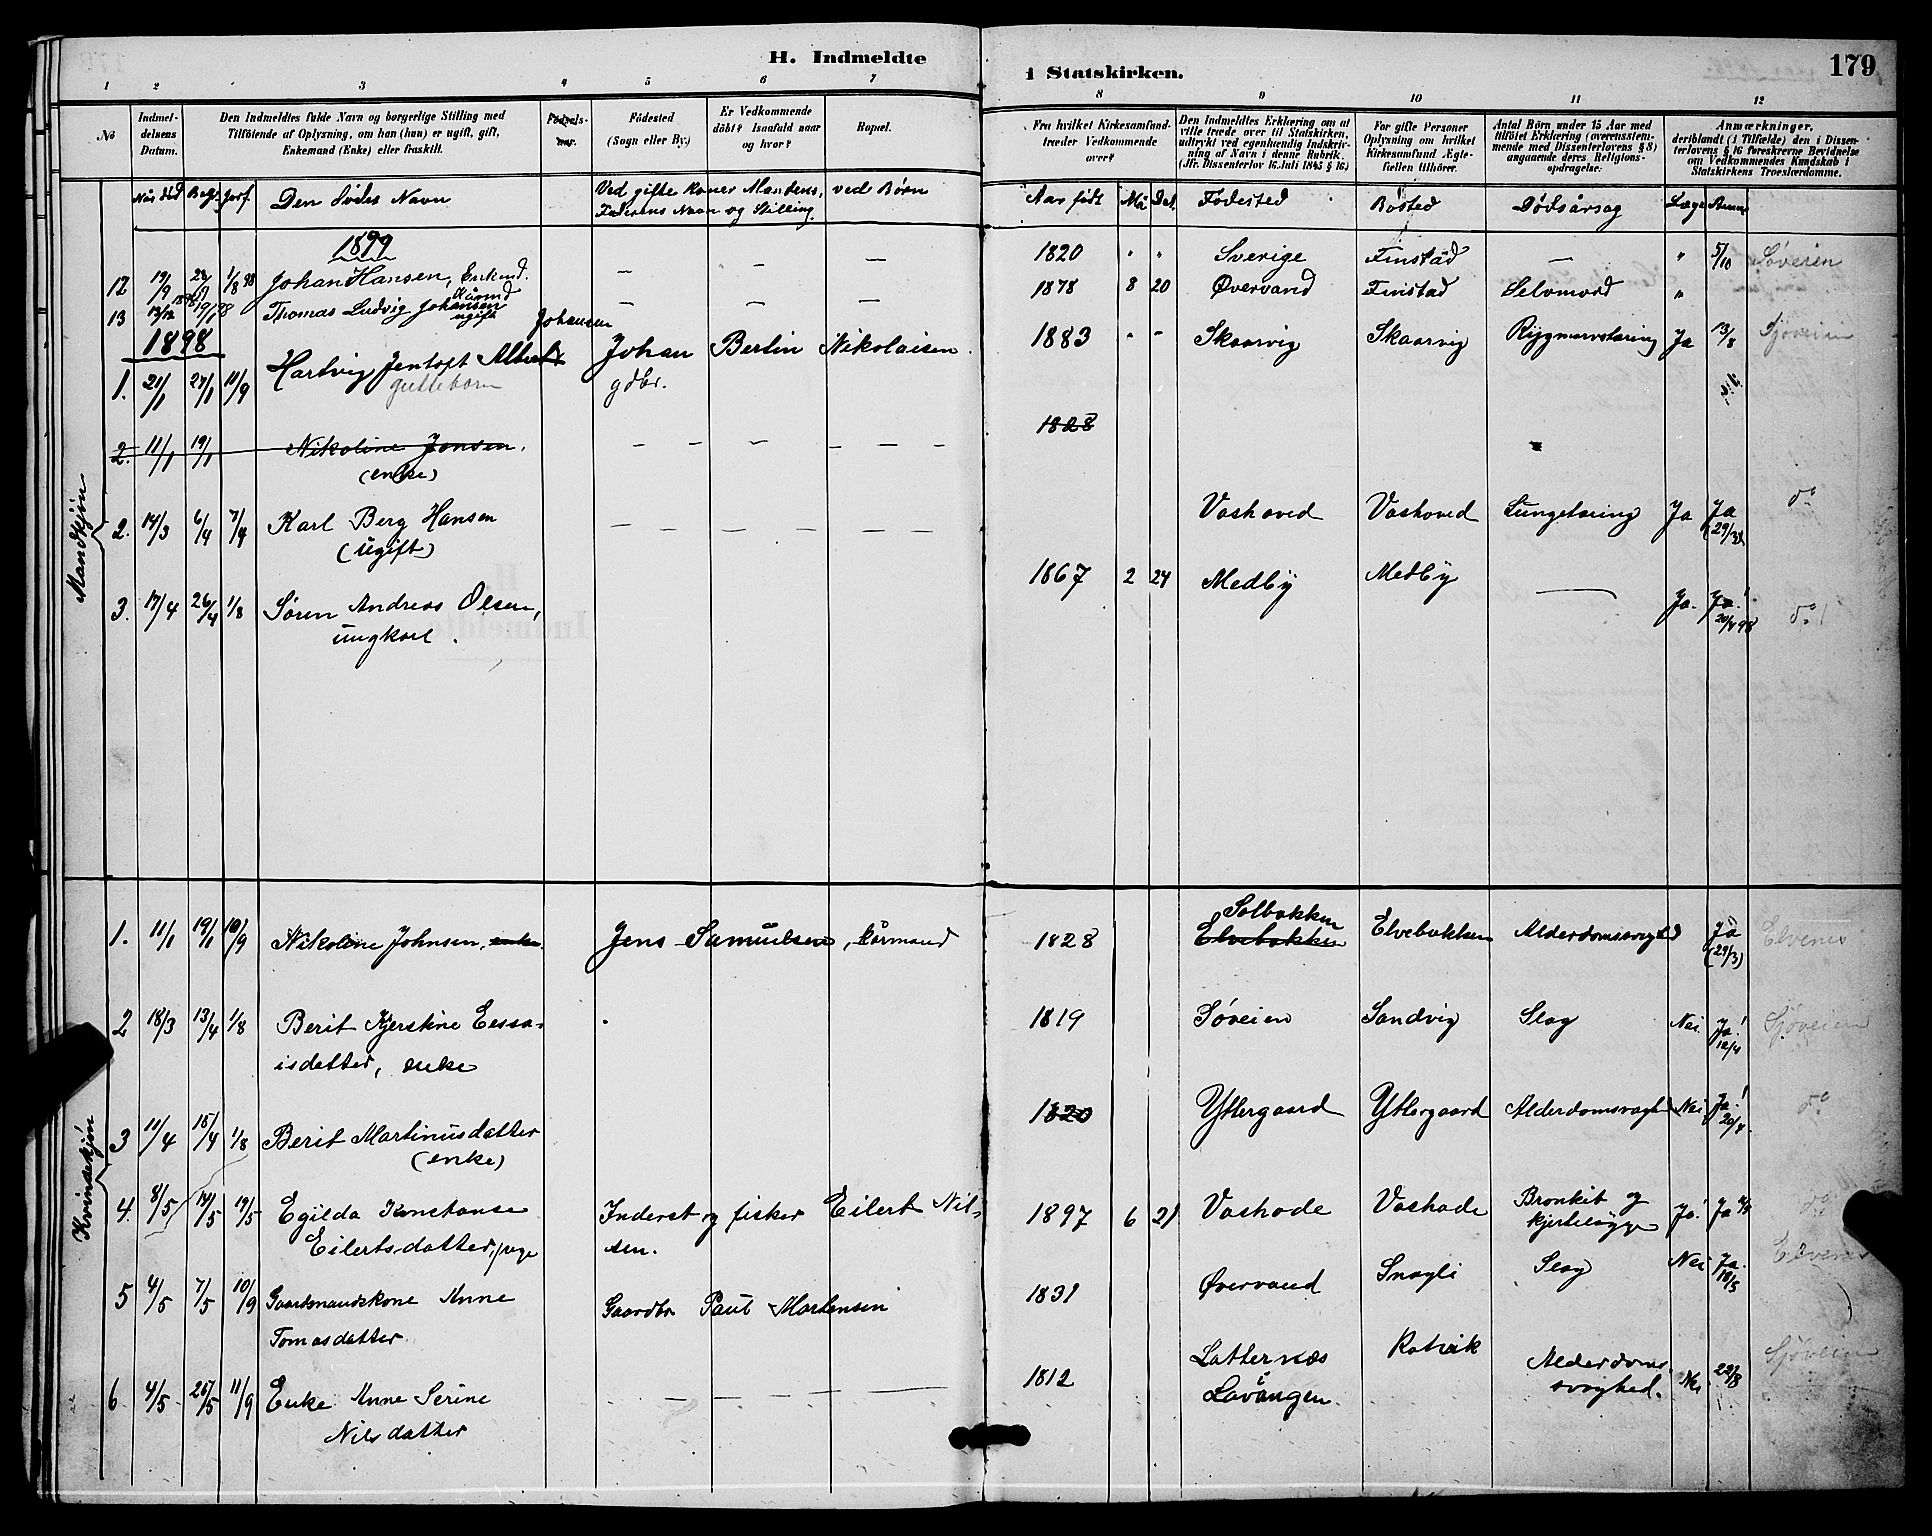 H. Indmeldte
i Statskirken.
179
1 2 3 4 5 6 7
8 9 10 11 12
No
Indmel-
delsens
Datum.
Den Indmeldtes fulde Navn og borgerlige Stilling med
Tilföiende af Oplysning, om han (hun) er ugift, gift,
Enkemand (Enke) eller fraskilt.
Födsels-
aar.
Födested
(Sogn eller By.)
Er Vedkommende
döbt? Isaafald naar
og hvor?
Bopæl.
Fra hvilket Kirkesamfund
træder Vedkommende
over?
Den Indmeldtes Erklæring om at
ville træde over til Statskirken,
udtrykt ved egenhændig Indskriv-
ning af Navn i denne Rubrik.
(Jfr. Dissenterlov 16. Juli 1845 § 16)
For gifte Personer
Oplysning om hvilket
Kirkesamfund Ægte-
fællen tilhörer.
Antal Börn under 15 Aar med
tilföiet Erklæring (overensstem-
mende med Dissenterlovens § 8)
angaaende deres Religions-
opdragelse.
Anmærkninger,
deriblandt (i Tilfælde) den i Dissen-
terlovens § 16 foreskrevne Bevidnelse
om Vedkommendes Kundskab i
Statskirkens Troeslærdomme.
Naar död Begr. Jorf. Den Dödes Navn
Ved gifte Koner Mandens, ved Børn
Faderens Navn og Stilling.
Aar födt Må Dag Födested Bosted Dödsårsag Læge Anm
1899
12 19/9 1/8 98 Johan Hansen, Enkmd. — — — 1820 " " Sverige Finstad — " 5/10 Søveien
13 Thomas Ludvig Johansen — — — 1878 8 20 Øvervand Finstad Selvmord "
ugift
1898
Johansen
1. 21/1 27/1 11/9 Hartvig Jentoft Albert Johan Bertin Nikolaisen 1883 " - Skaarvig Skaarvig Rygmarvstæring Ja 13/8 Sjøveien
guttebarn gdbr.
2. 11/1 19/1 Nikoline Jonsen. — — — — — — 1828
(enke)
Mandkjøn
2. 14/3 6/4 7/4 Karl Berg Hansen — — — — — — Vashoved Vashoved Lungetæring Ja Ja do
(ugift)
3. 17/4 26/4 1/8 Søren Andreas Olsen, 1867 2 24 Medby Medby — Ja. Ja! do
ungkarl. 20/4 98
Solbakken
1. 11/1 19/1 10/9 Nikoline Johnsen, enke. Jens Samuelsen, kårmand 1828 Elvebakken Elvebakken Alderdomssvaghd Ja Elvenes
(29/3)
2 18/3 13/4 1/8 Berit Kjerstine Eessa- 1819 Søveien Sandvig Slag Nei Ja! Sjøveien
isdatter, enke 12/4
3 11/4 15/4 1/8 Berit Martinusdatter 1820 Yttergaard Yttergaard Alderdomsvaghd Nei Ja! do
(enke) 20/4
Kvindekjøn
4. 8/5 14/5 19/5 Egilda Konstanse Inderst og fisker Eilert Nil- 1897 6 21 Vashode Vashode Bronkit og Ja! Ja do
Eilertsdatter, pige sen. kjertelsyge
5 4/5 7/5 10/9 Gaardmandskone Anne Gaardbr Paul Mortensen 1831 Øvervand Snogli Slag Nei Ja. Elvenes
Tomasdatter. 18/5
6 4/5 26/5 11/9 Enke Anne Serine — — — — 1812 Latternæs Rotvik Alderdoms- Nei 22/8 Sjøveien
Nilsdatter Lavangen. svaghed.